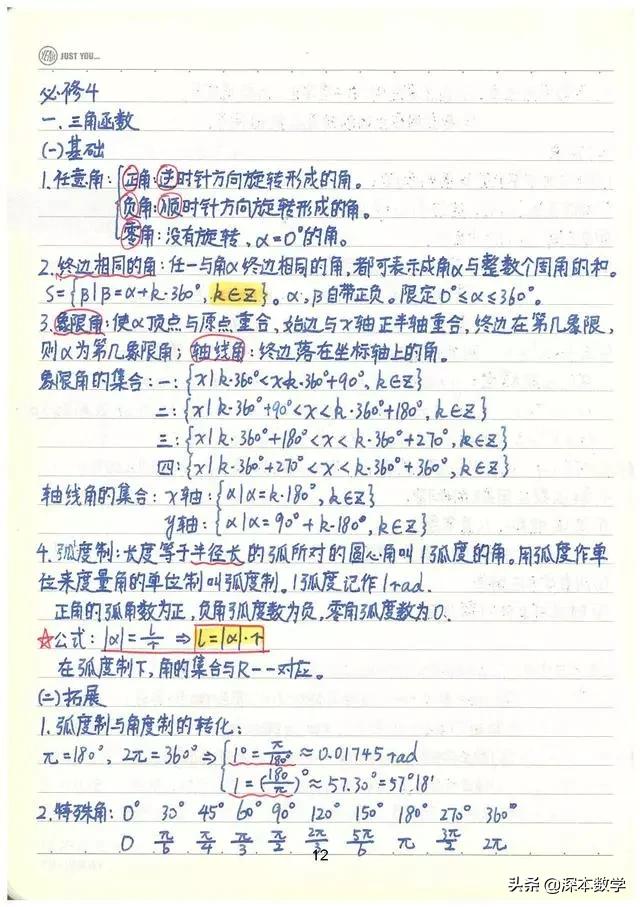 YEAH JUST YOU...
必修4
一、三角函数
(一)基础
1.任意角:{正角:逆时针方向旋转形成的角。
负角:顺时针方向旋转形成的角。
零角:没有旋转,α=0°的角。
2.终边相同的角:任一与角α终边相同的角,都可表示成角α与整数个周角的和。
S={β|β=α+k·360°,k∈Z}。α,β自带正负。限定0°≤α≤360°。
3.象限角:使α顶点与原点重合,始边与x轴正半轴重合,终边在第几象限,
则α为第几象限角;轴线角:终边落在坐标轴上的角。
象限角的集合:一:{x|k·360°<x<k·360°+90°,k∈Z}
二:{x|k·360°+90°<x<k·360°+180°,k∈Z}
三:{x|k·360°+180°<x<k·360°+270°,k∈Z}
四:{x|k·360°+270°<x<k·360°+360°,k∈Z}
轴线角的集合:x轴:{α|α=k·180°,k∈Z}
y轴:{α|α=90°+k·180°,k∈Z}
4.弧度制:长度等于半径长的弧所对的圆心角叫1弧度的角。用弧度作单
位来度量角的单位制叫弧度制。1弧度记作1rad.
正角的弧角数为正,负角弧度数为负,零角弧度数为0.
☆公式:|α|=l/r⇒l=|α|·r
在弧度制下,角的集合与R一一对应。
(二)拓展
1.弧度制与角度制的转化:
π=180°,2π=360°⇒{1°=π/180°≈0.01745rad
1=(180/π)°≈57.30°=57°18'
2.特殊角:0° 30° 45° 60° 90° 120° 150° 180° 270° 360°
0 π/6 π/4 π/3 π/2 2π/3 5π/6 π 3π/2 2π
12
头条@深本数学